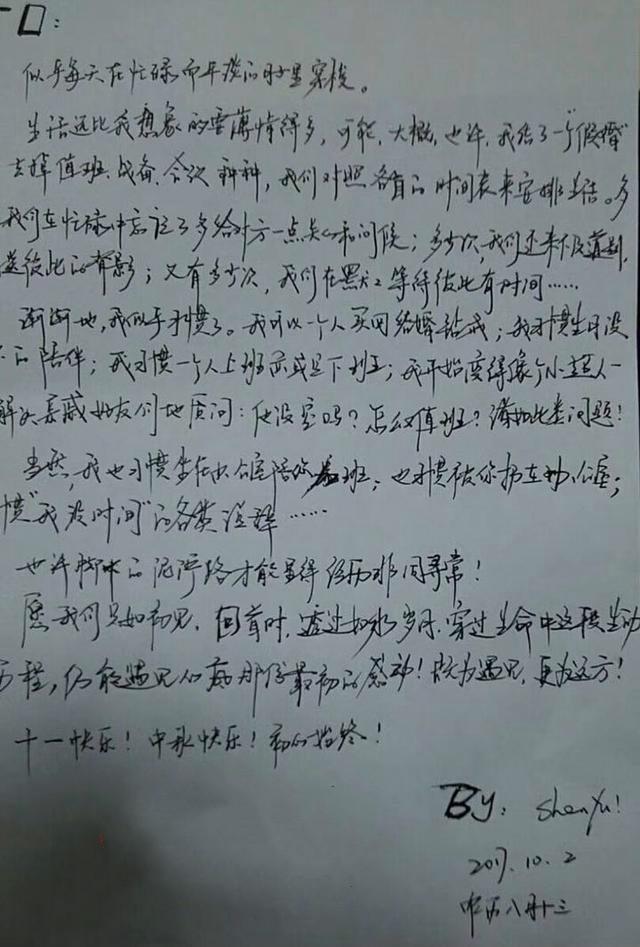 口:
似乎每天在忙碌而平淡的日子里穿梭。
生活远比我想象的要薄情得多,可能,大概,也许,我结了一个"假婚"
去掉值班、战备、会议种种,我们对照各自的时间表来安排生活。多
我们在忙碌中忘记了多给对方一点关心和问候;多少次,我们还来不及道别,
彼此的背影;又有多少次,我们在黑夜里等待彼此有时间……
渐渐地,我似乎习惯了。我可以一个人买回结婚钻戒;我习惯生日没
的陪伴;我习惯一个人上班亦或是下班;我开始变得像个小超人一
解决亲戚好友们地质问:他没空吗?怎么又值班?诸如此类问题!
当然,我也习惯坐在办公室陪你 班;也习惯被你扔在办公室;
惯"我没时间"的各类诠释……
也许脚下的泥泞路才能显得经历非同寻常!
愿我们只如初见,回首时,透过如水岁月,穿过生命中这段生动
历程,仍能遇见心底那份最初的感动!既为遇见,更为远方!
十一快乐!中秋快乐!初心始终!
BY: ShenYu!
2017.10.2
农历八月十三